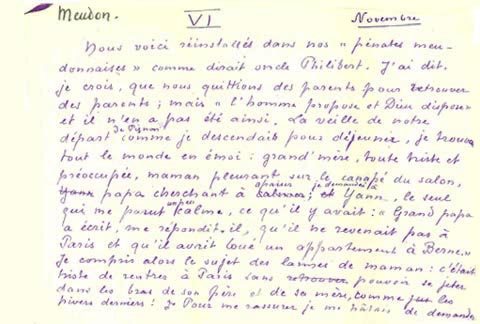 Meudon. VI Novembre
Nous voici réinstallés dans nos « pénates meu-
donnaises » comme dirait oncle Philibert. J'ai dit,
je crois, que nous quittions des parents pour retrouver
des parents ; mais « l'homme propose et Dieu dispose »
et il n'en a pas été ainsi. La veille de notre
départ de Pignan comme je descendais pour déjeuner, je trouvai
tout le monde en émoi : grand'mère, toute triste et
préoccupée, maman pleurant sur le canapé du salon,
Yann papa cherchant à calmer apaiser ; et je demandai à Yann, le seul
qui me parut un peu calme, ce qu'il y avait : « Grand papa
a écrit, me répondit-il, qu'il ne revenait pas à
Paris et qu'il avait loué un appartement à Berne. »
Je compris alors le sujet des larmes de maman : c'était
triste de rentrer à Paris sans retrouver pouvoir se jeter
dans les bras de son père et de sa mère, comme les
hivers derniers ! Je Pour me rassurer je me hâtais de demander